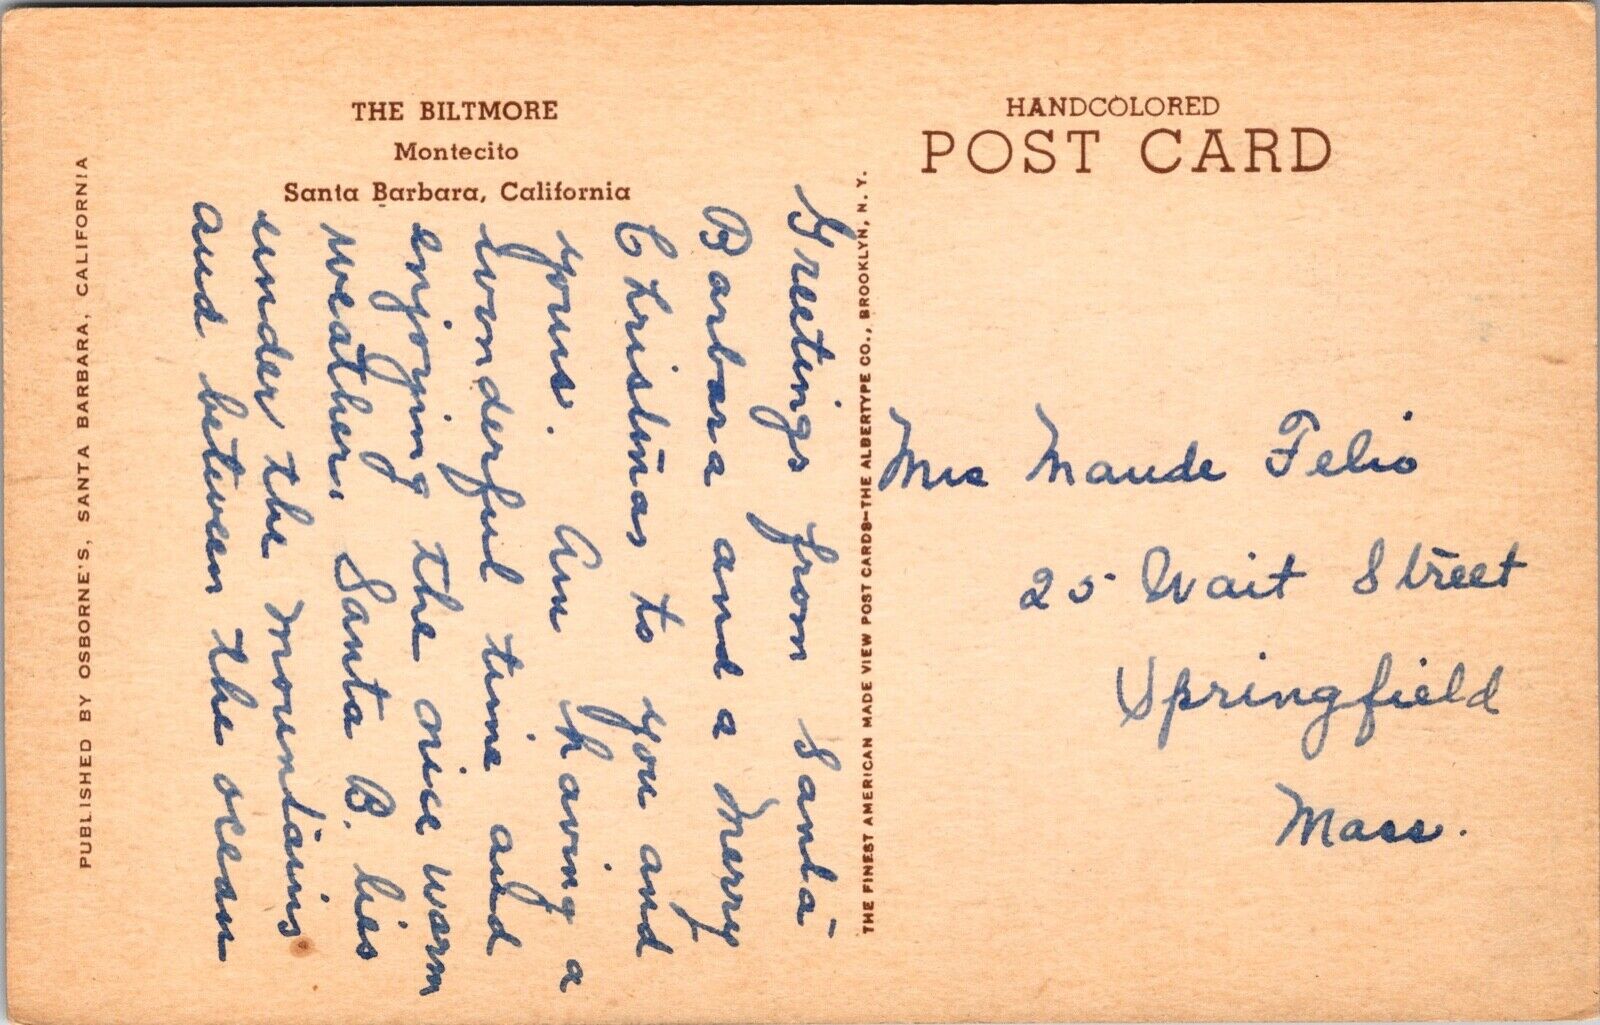 THE BILTMORE
Montecito
Santa Barbara, California
PUBLISHED BY OSBORNE'S, SANTA BARBARA, CALIFORNIA
Greetings from Santa
Barbara and a Merry
Christmas to you and
yours. Am having a
wonderful time and
enjoying the nice warm
weather, Santa B. lies
under the mountains
and between the ocean
THE FINEST AMERICAN MADE VIEW POST CARDS—THE ALBERTYPE CO., BROOKLYN, N. Y.
HANDCOLORED
POST CARD
Mrs Maude Felio
25 Wait Street
Springfield
Mass.